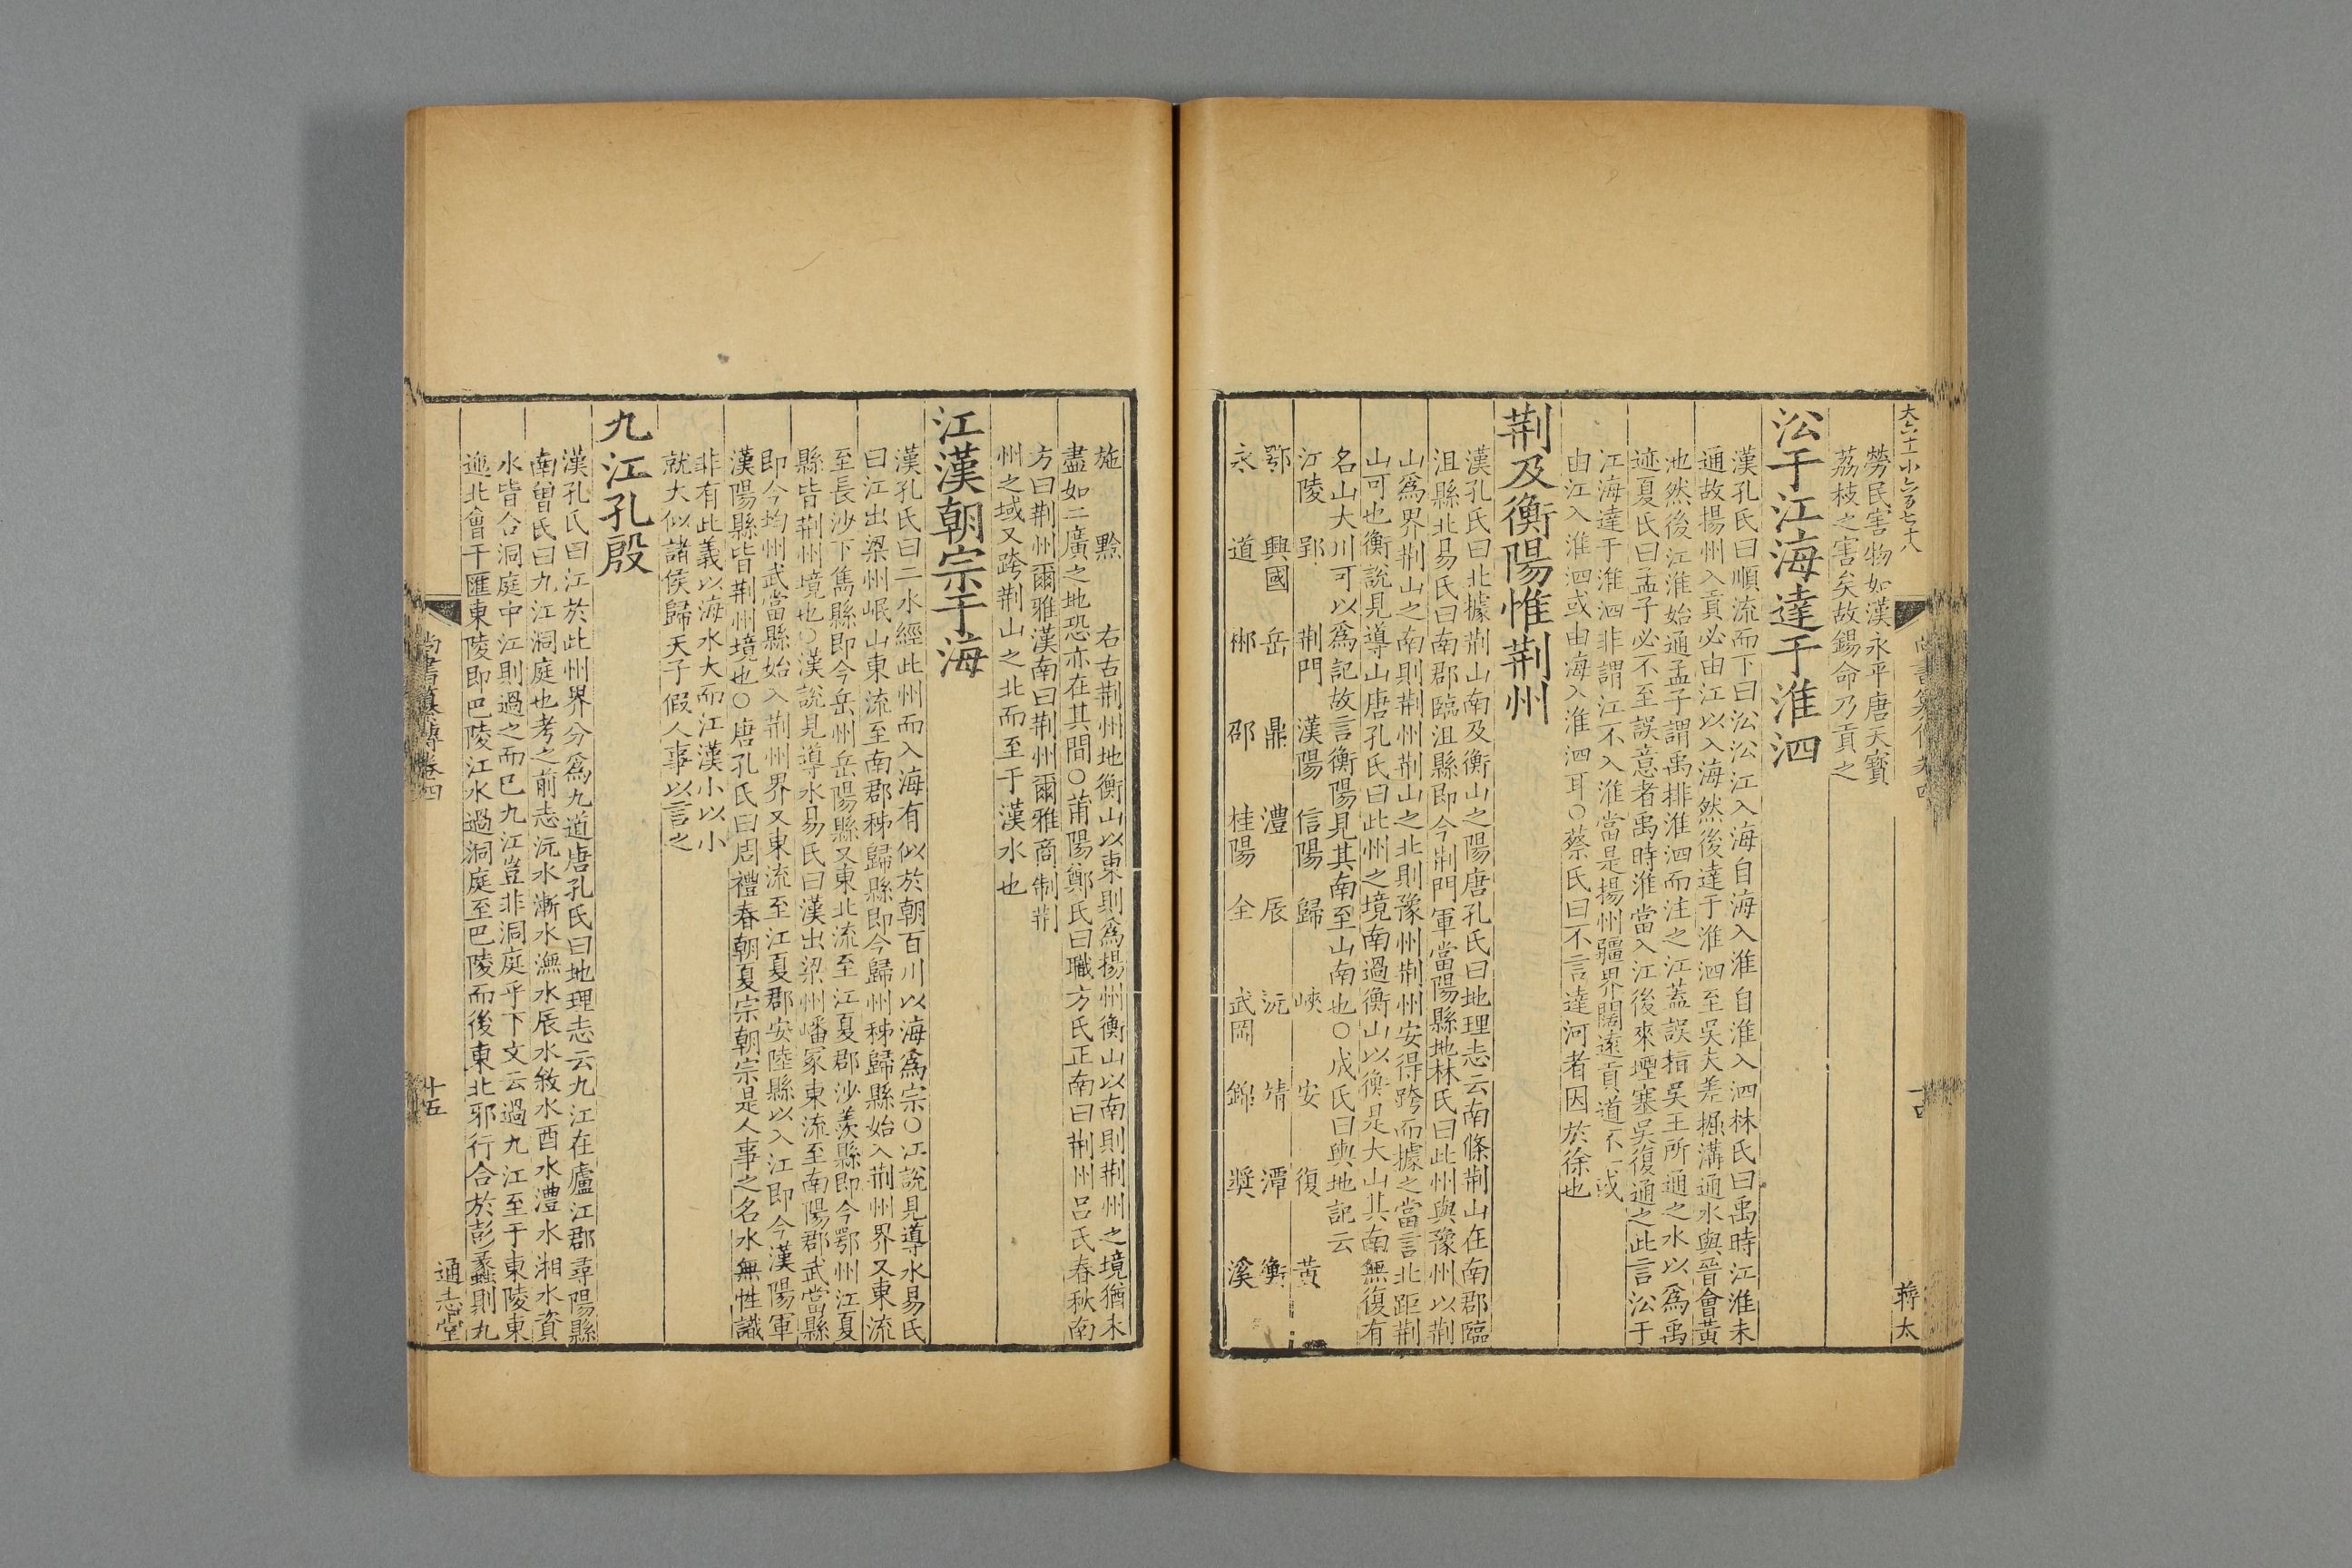 大六十小六百七十八
蔣太
勞民害物如漢永平唐天寶
荔枝之害矣故錫命乃貢之
㳂于江海達于淮泗
漢孔氏曰順流而下曰㳂㳂江入海自海入淮自淮入泗林氏曰禹時江淮未
通故揚州入貢必由江以入海然後達于淮泗至吳夫差掘溝通水與晉會黃
池然後江淮始通孟子謂禹排淮泗而注之江蓋誤指吳王所通之水以為禹
迹夏氏曰孟子必不至誤意者禹時淮當入江後來堙塞吳復通之此言㳂于
江海達于淮泗非謂江不入淮當是揚州疆界闊遠貢道不一或
由江入淮泗或由海入淮泗耳○蔡氏曰不言達河者因於徐也
荆及衡陽惟荆州
漢孔氏曰北據荆山南及衡山之陽唐孔氏曰地理志云南條荆山在南郡臨
沮縣北易氏曰南郡臨沮縣即今荆門軍當陽縣地林氏曰此州與豫州以荆
山為界荆山之南則荆州荆山之北則豫州荆州安得跨而據之當言北距荆
山可也衡說見導山唐孔氏曰此州之境南過衡山以衡是大山其南無復有
名山大川可以為記故言衡陽見其南至山南也○成氏曰輿地記云
江陵 郢 荆門 漢陽 信陽 歸 峽 安 復 黃
鄂 興國 岳 鼎 澧 辰 沅 靖 潭 衡
永 道 郴 邵 桂陽 全 武岡 錦 奬 溪
施 黔 右古荆州地衡山以東則為揚州衡山以南則荆州之境猶未
盡如二廣之地恐亦在其間○莆陽鄭氏曰職方氏正南曰荆州呂氏春秋南
方曰荆州爾雅漢南曰荆州爾雅商制荆
州之域又跨荆山之北而至于漢水也
江漢朝宗于海
漢孔氏曰二水經此州而入海有似於朝百川以海為宗○江說見導水易氏
曰江出梁州岷山東流至南郡秭歸縣即今歸州秭歸縣始入荆州界又東流
至長沙下雋縣即今岳州岳陽縣又東北流至江夏郡沙羨縣即今鄂州江夏
縣皆荆州境也○漢說見導水易氏曰漢出梁州嶓冢東流至南陽郡武當縣
即今均州武當縣始入荆州界又東流至江夏郡安陸縣以入江即今漢陽軍
漢陽縣皆荆州境也○唐孔氏曰周禮春朝夏宗朝宗是人事之名水無性識
非有此義以海水大而江漢小以小
就大似諸侯歸天子假人事以言之
九江孔殷
漢孔氏曰江於此州界分為九道唐孔氏曰地理志云九江在廬江郡尋陽縣
南曾氏曰九江洞庭也考之前志沅水漸水潕水辰水敘水酉水澧水湘水資
水皆合洞庭中江則過之而已九江豈非洞庭乎下文云過九江至于東陵東
迤北會于匯東陵即巴陵江水過洞庭至巴陵而後東北邪行合於彭蠡則九
尚書纂傳卷四
十五
通志堂